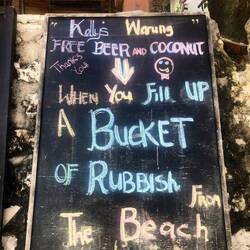 "Kelly's Warung"
FREE BEER AND COCONUT
Thanks
You
WHEN YOU FILL UP
A BUCKET
OF RUBBISH
FROM
THE BEACH